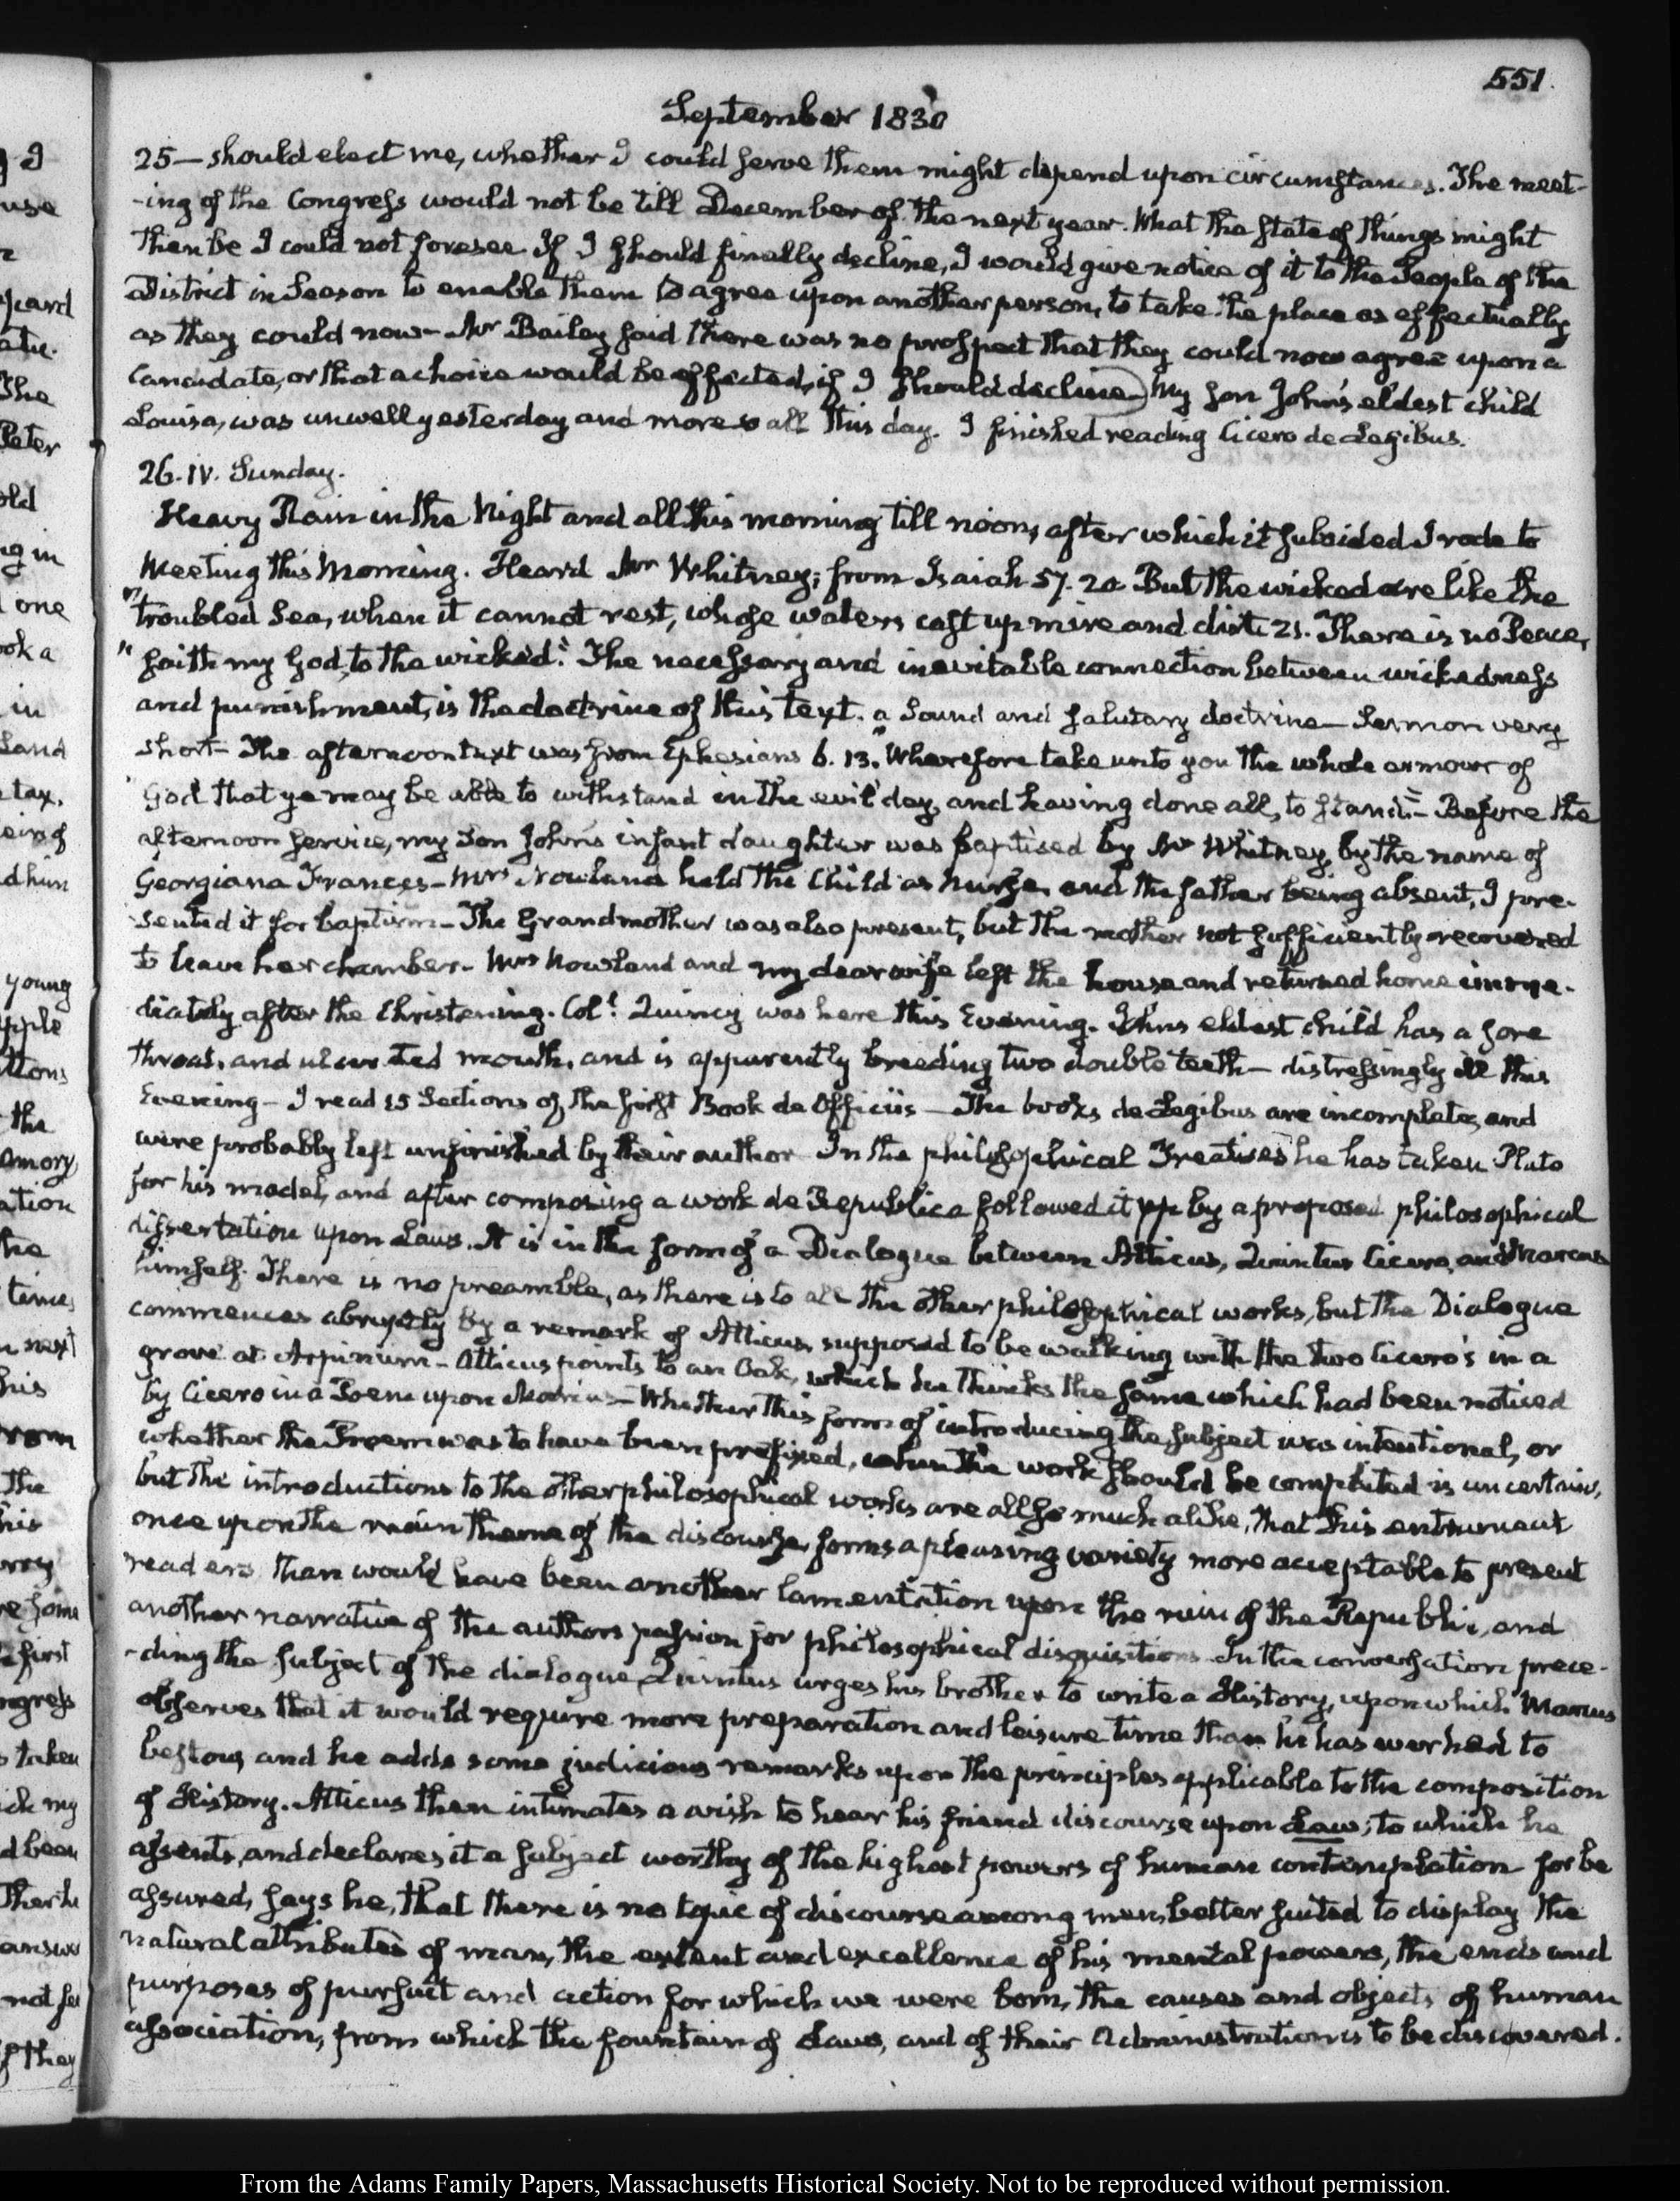 551.
September 1830
25— should elect me, whether I could serve them might depend upon circumstances. The meet-
-ing of the Congress would not be till December of the next year. What the state of things might
then be I could not foresee If I should finally decline, I would give notice of it to the People of the
District in Season to enable them to agree upon another person, to take the place as effectually
as they could now— Mr Bailey said there was no prospect that they could now agree upon a
Candidate, or that a choice would be effected, if I should decline— My Son John's eldest child
Louisa, was unwell yesterday and more so all this day. I finished reading Cicero de Legibus.
26. IV. Sunday.
Heavy Rain in the Night and all this morning till noon, after which it subsided I rode to
Meeting this Morning. Heard Mr Whitney; from Isaiah 57. 20 But the wicked are like the
"troubled Sea, when it cannot rest, whose waters cast up mire and dirt. 21. There is no Peace,
"saith my God, to the wicked." The necessary and inevitable connection between wickedness
and punishment, is the doctrine of this text. a Sound and salutary doctrine— Sermon very
short— The afternoon text was from Ephesians 6. 13. "Wherefore take unto you the whole armour of
"God that ye may be able to withstand in the evil day, and having done all, to stand."— Before the
afternoon service, my Son John's infant daughter was baptised by Mr Whitney, by the name of
Georgiana Frances— Mrs Nowland held the Child as Nurse, and the father being absent, I pre-
-sented it for baptism— The Grandmother was also present, but the mother not sufficiently recovered
to leave her chamber. Mrs Nowland and my dear wife left the house and returned home imme-
diately after the Christening. Col. Quincy was here this Evening. John's eldest child has a sore
throat, and ulcerated mouth, and is apparently breeding two double teeth— distressingly ill this
Evening— I read 15 Sections of the first Book de Officiis— The books de Legibus are incomplete, and
were probably left unfinished by their author In the philosophical Treatises he has taken Plato
for his model, and after composing a work de Republica followed it up by a proposed philosophical
dissertation upon Laws. It is in the form of a Dialogue between Atticus, Quintus Cicero, and Marcus
himself. There is no preamble, as there is to all the other philosophical works, but the Dialogue
commences abruptly by a remark of Atticus, supposed to be walking with the two Cicero's in a
grove at Arpinum— Atticus points to an Oak, which he thinks the same which had been noticed
by Cicero in a Poem upon Marius— Whether this form of introducing the subject was intentional, or
whether the Proem was to have been prefixed, when the work should be completed is uncertain,
but the introductions to the other philosophical works are all so much alike, that this entrance at
once upon the main theme of the discourse, forms a pleasing variety more acceptable to present
readers than would have been another lamentation upon the ruin of the Republic, and
another narrative of the authors passion for philosophical disquisitions In the conversation prece-
-ding the subject of the dialogue, Quintus urges his brother to write a History, upon which Marcus
observes that it would require more preparation and leisure time than he has to
bestow, and he adds some judicious remarks upon the principles applicable to the composition
of History. Atticus then intimates a wish to hear his friend discourse upon Law; to which he
assents, and declares it a subject worthy of the highest powers of human contemplation for be
assured, says he, that there is no topic of discourse among men, better suited to display the
natural attributes of man, the extent and excellence of his mental powers, the ends and
purposes of pursuit and action for which we were born, the causes and objects of human
association, from which the fountain of Laws, and of their Administration is to be discovered.
From the Adams Family Papers, Massachusetts Historical Society. Not to be reproduced without permission.